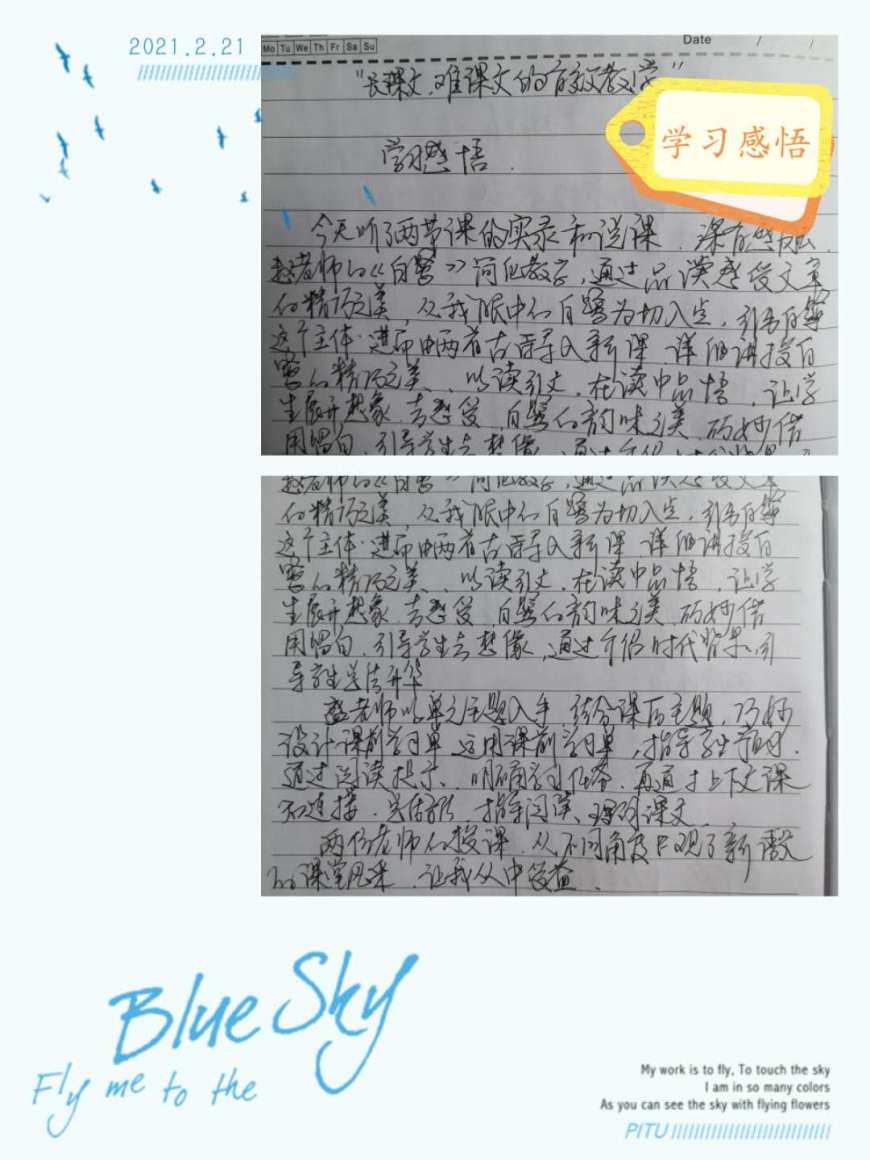 2021.2.21
Mo Tu We Th Fr Sa Su
Date / /
"长课文、难课文的有效教学"
学习感悟
学习感悟.
今天听了两节课的实录和说课,深有感触.
赵老师的《白鹭》简化教学,通过品读感受文章
的精巧之美,从我眼中的白鹭为切入点,引出白鹭
这个主体.进而由两首古诗导入新课 详细讲授白
鹭的精巧之美、以读引文,在读中品悟,让学
生展开想象.去感受,白鹭的韵味之美,巧妙借
用留白,引导学生去想像,通过介绍
赵老师的《白鹭》简化教学,通过品读感受文章
的精巧之美,从我眼中的白鹭为切入点,引出白鹭
这个主体.进而由两首古诗导入新课 详细讲授白
鹭的精巧之美、以读引文,在读中品悟,让学
生展开想象.去感受,白鹭的韵味之美,巧妙借
用留白,引导学生去想像,通过介绍时代背景、引
导学生总结升华
老师以单元主题入手,结合课后主题,巧妙
设计课前学习单 运用课前学习单,指导学生预习.
通过阅读提示、明确学习任务、再通过上下文课
知连接. 指导阅读、理解课文.
两位老师的授课,从不同角度展现了新
的课堂风采,让我从中受益.
Blue Sky
Fly me to the
My work is to fly, To touch the sky
I am in so many colors
As you can see the sky with flying flowers
PITU